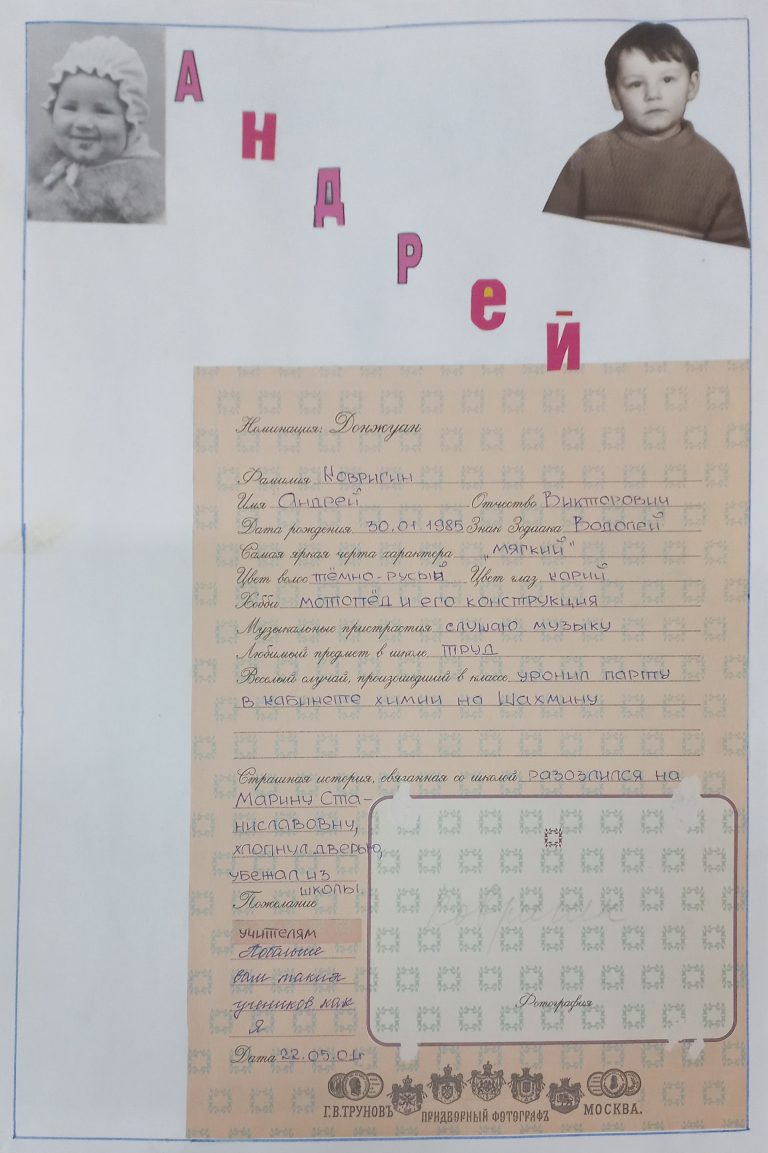 АНДРЕЙ
Номинация: Донжуан
Фамилия Ковригин
Имя Андрей Отчество Викторович
Дата рождения 30.01.1985 Знак Зодиака Водолей
Самая яркая черта характера „мягкий"
Цвет волос тёмно-русый Цвет глаз карий
Хобби мотопёд и его конструкция
Музыкальные пристрастия слушаю музыку
Любимый предмет в школе труд
Веселый случай, произошедший в классе уронил парту
в кабинете химии на Шахмину
Страшная история, связанная со школой разозлился на
Марину Ста-
ниславовну,
хлопнул дверью,
убежал из
школы.
Пожелание
учителям
Побольше
вам таких
учеников как
я
Фотография
Дата 22.05.01
Г.В.ТРУНОВЪ ПРИДВОРНЫЙ ФОТОГРАФЪ МОСКВА.